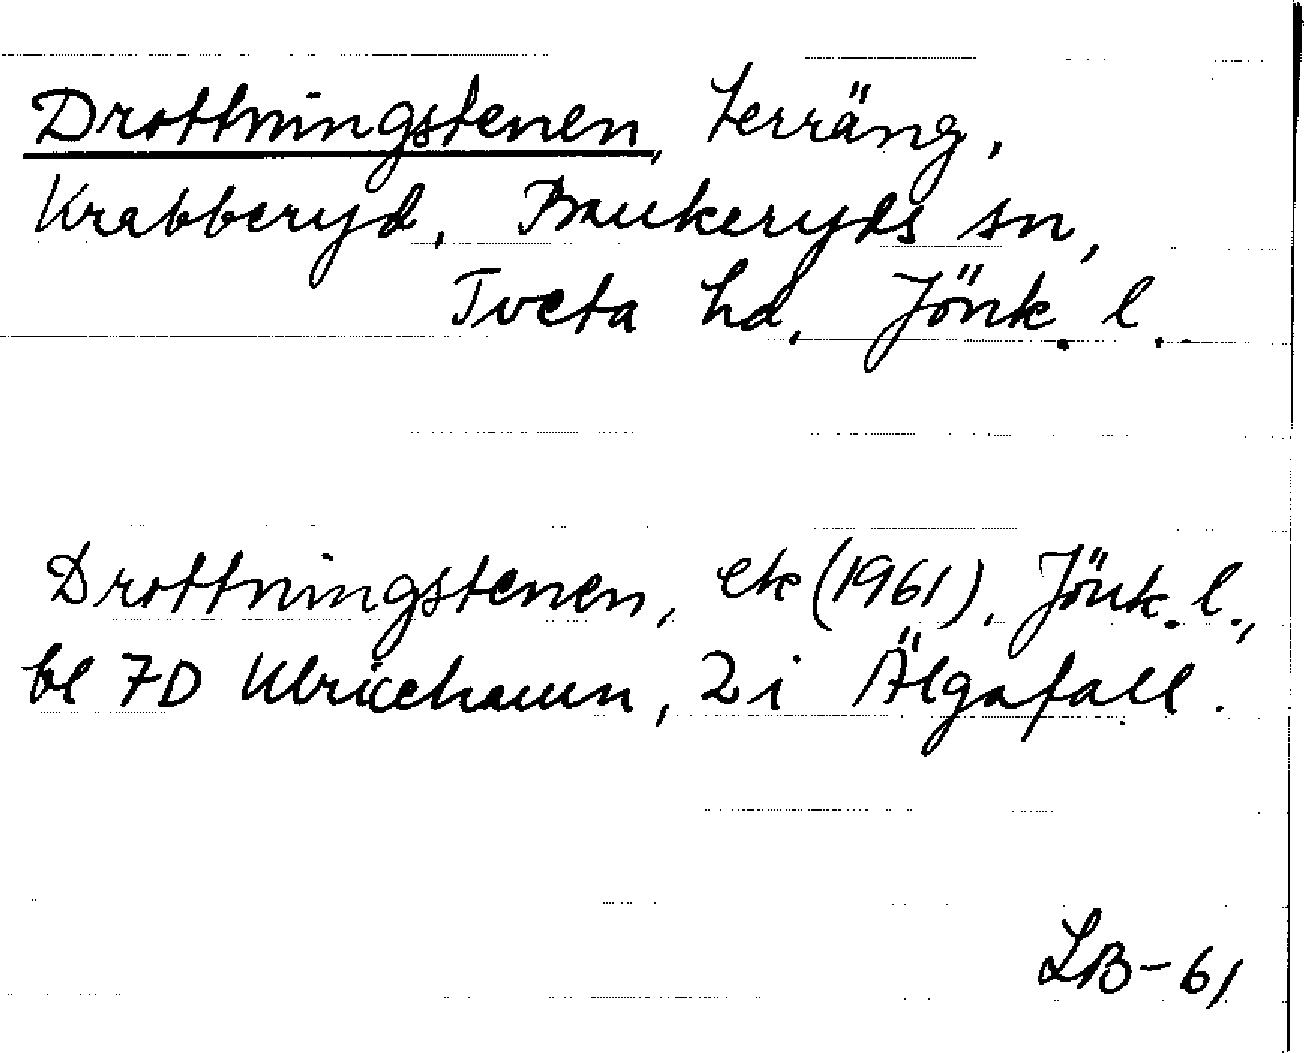 Drottningstenen, terräng,
Krabberyd, Bankeryds sn,
Tveta hd, Jönk. l.
Drottningstenen, ek (1961), Jönk. l.,
bl 7D Ulricehamn, 2i Älgafall.
LB-61